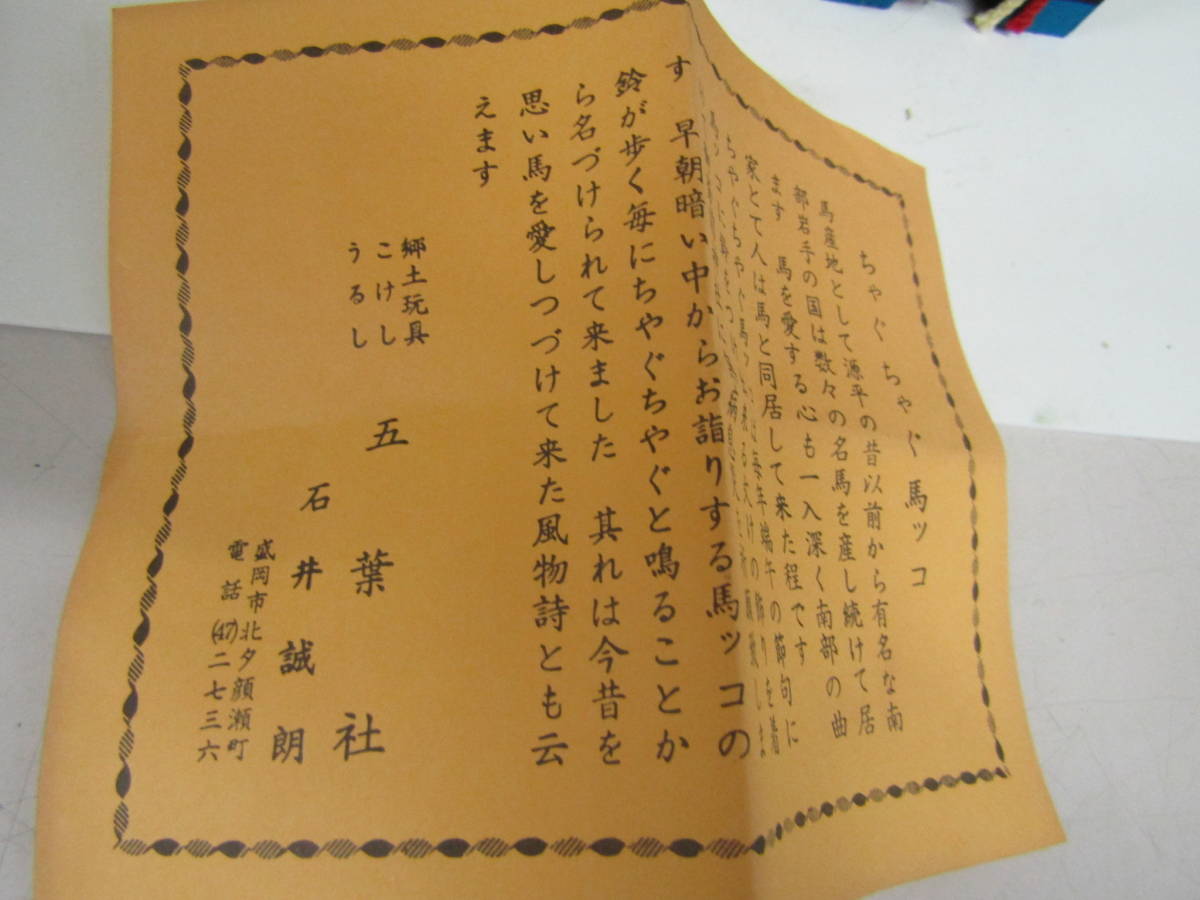 ちゃぐちゃぐ馬ッコ
馬産地として源平の昔以前から有名な南
部岩手の国は数々の名馬を産し続けて居
ます　馬を愛する心も一入深く南部の曲
家とて人は馬と同居して来た程です
ちやぐちやぐ馬ッコ 毎年端午の節句に
飾りを着
す　早朝暗い中からお詣りする馬ッコの
鈴が歩く毎にちやぐちやぐと鳴ることか
ら名づけられて来ました　其れは今昔を
思い馬を愛しつづけて来た風物詩とも云
えます
郷土玩具
こけし
うるし
五葉社
石井誠朗
盛岡市北夕顔瀬町
電話(47)二七三六